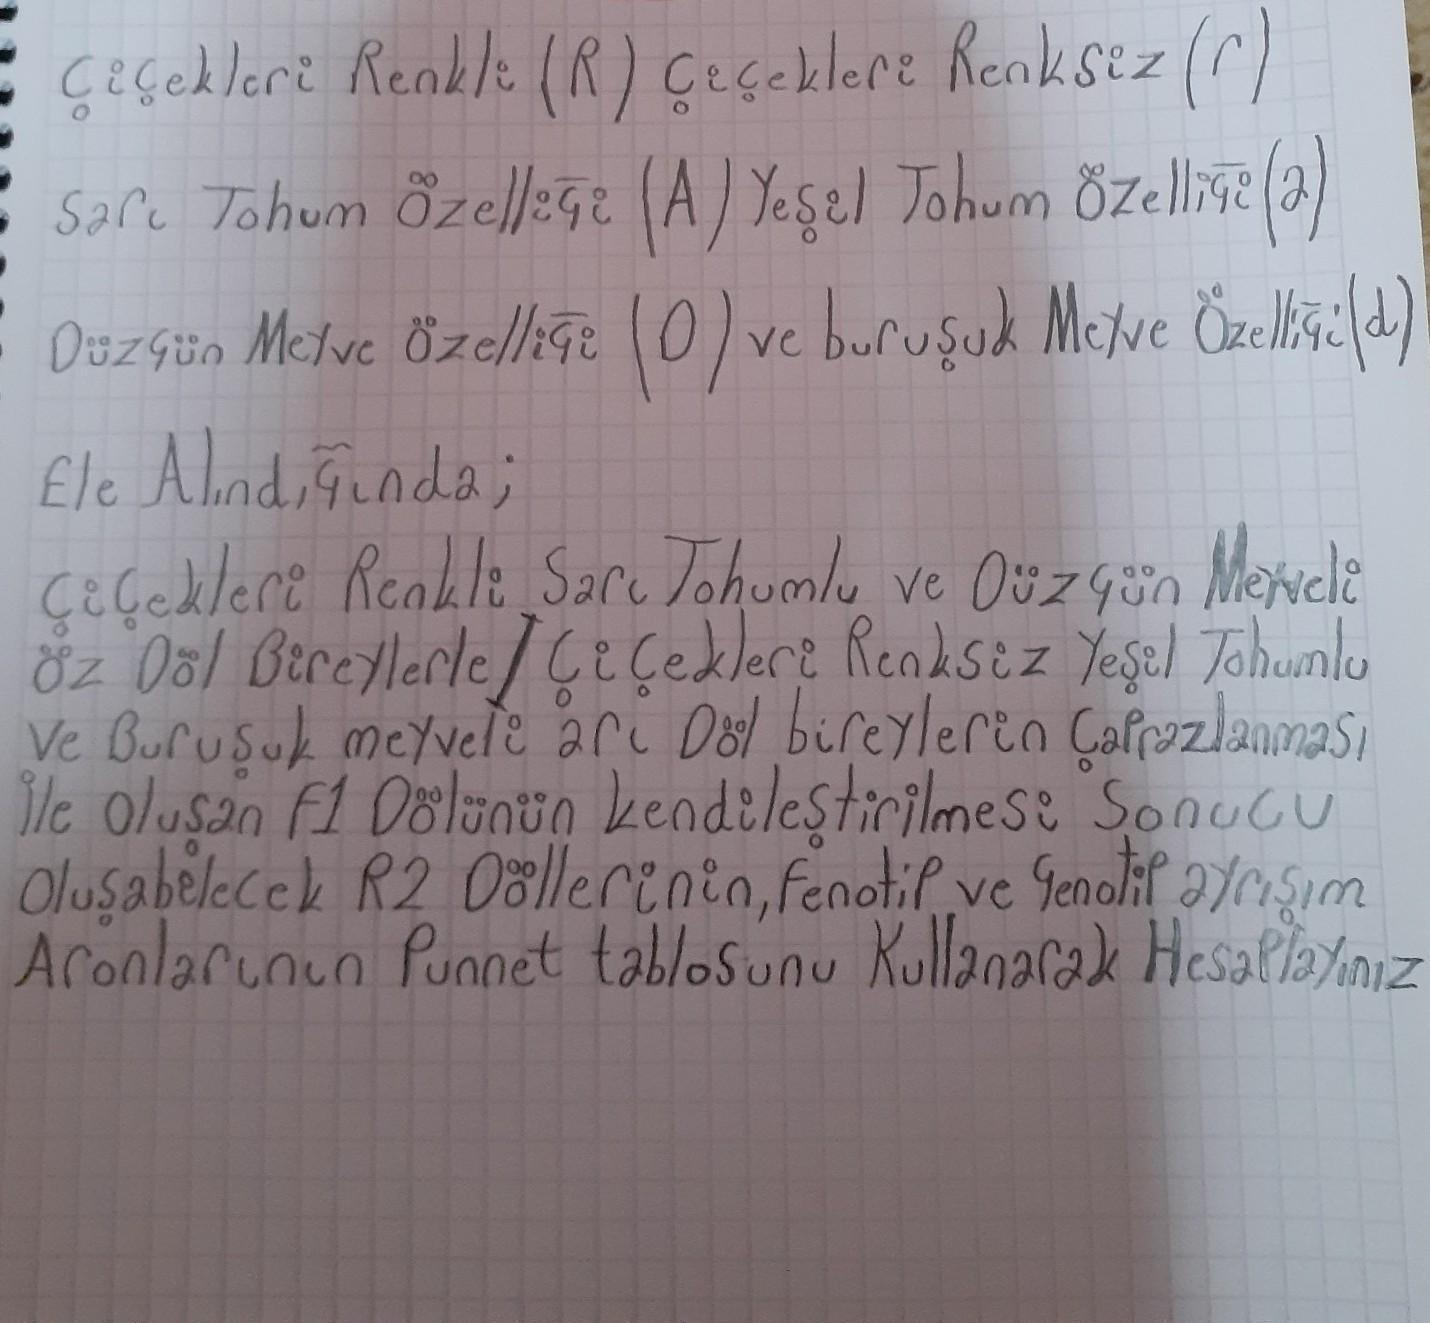 Çiçekleri Renkli (R) Çiçekleri Renksiz (r)
Sarı Tohum Özelliği (A) Yeşil Tohum Özelliği (a)
Düzgün Meyve Özelliği (D) ve buruşuk Meyve Özelliği (d)
Ele Alındığında;
Çiçekleri Renkli Sarı Tohumlu ve Düzgün Meyveli
öz Döl Bireylerle / Çiçekleri Renksiz Yeşil Tohumlu
Ve Buruşuk meyveli arı Döl bireylerin Çaprazlanması
İle Oluşan F1 Dölünün kendileştirilmesi Sonucu
Oluşabilecek R2 Döllerinin, Fenotip ve Genotip ayrışım
Aronlarının Punnet tablosunu Kullanarak Hesaplayınız